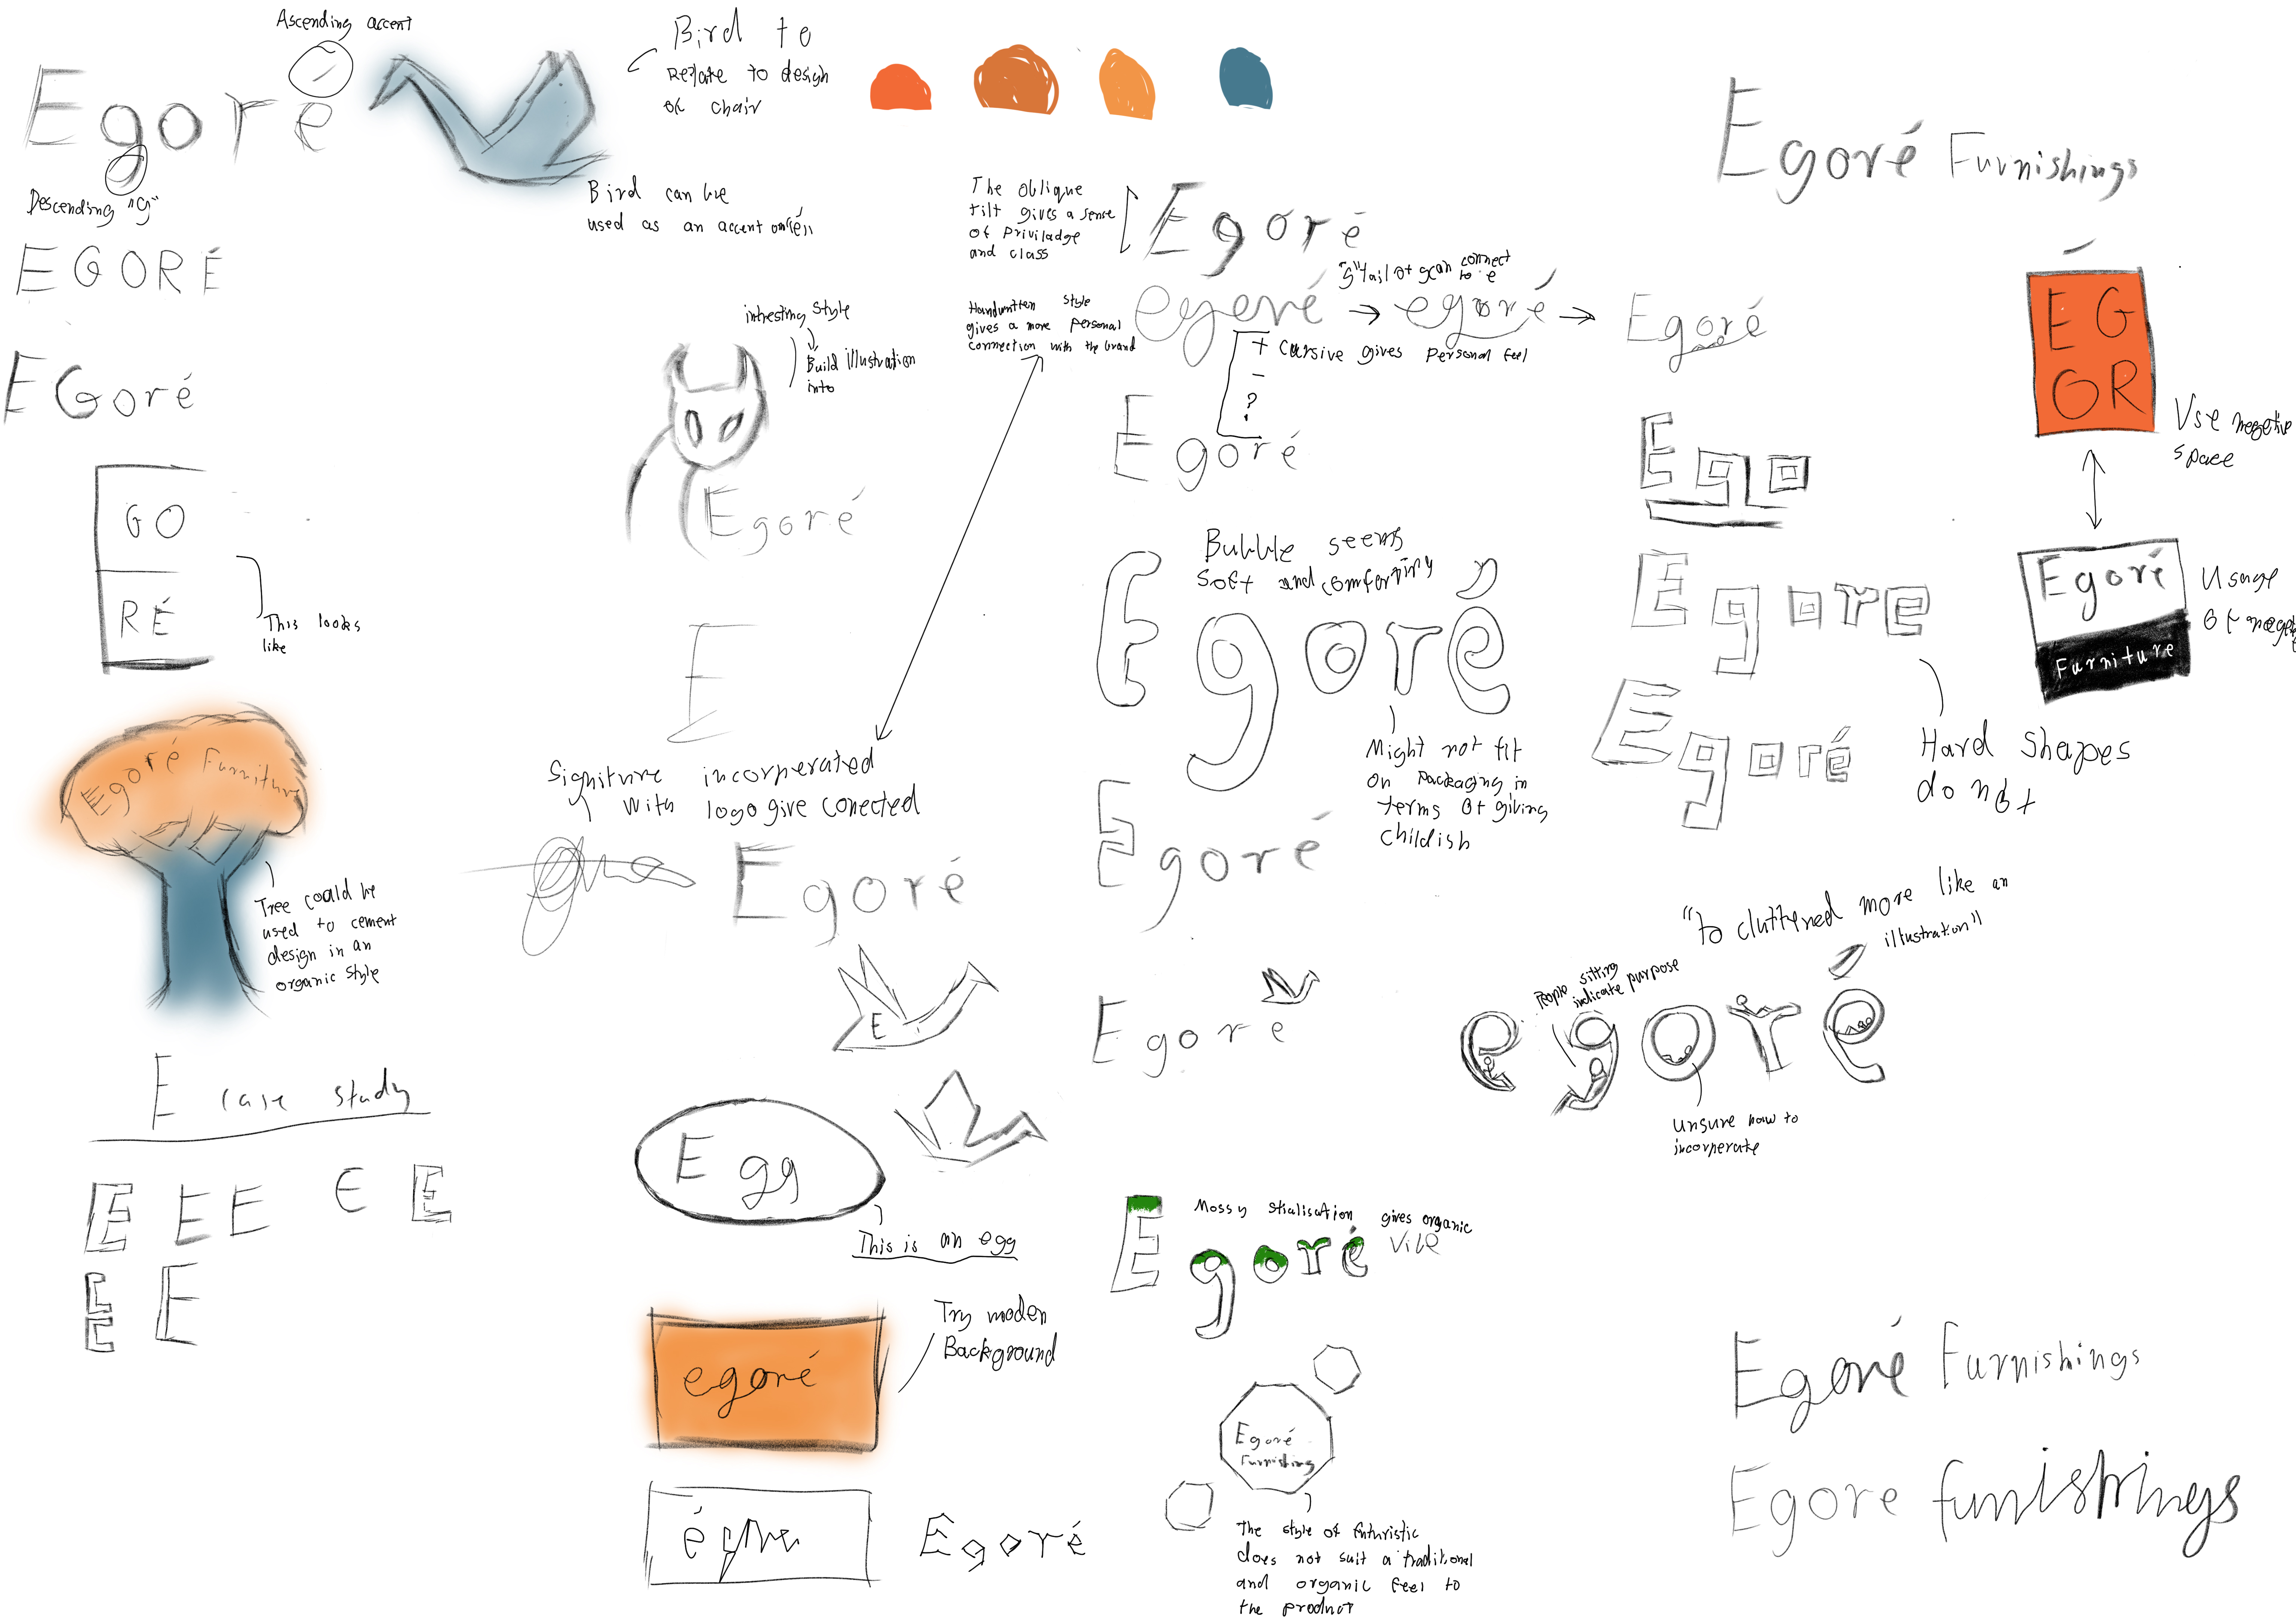 Ascending accent
Egore
Descending "g"
Bird to
Relate to design
of chair
Bird can be
used as an accent on "é"
EGORÉ
EGoré
GO
RÉ
This looks
like
Egoré Furniture
Tree could be
used to cement
design in an
organic style
E case study
E E E E E
E E
intresting style
Build illustration
into
Egoré
E
Signiture incorperated
with logo give conected
Egoré
E
E gg
This is an egg
Try moden
Background
egoré
Egoré
The oblique
tilt gives a sense
of priviladge
and class
Egoré
Handwritten style
gives a more personal
connection with the brand
"g" tail of g can connect
to e
egoré
Egoré
+ cursive gives personal feel
-
?
Egoré
Bubble seems
soft and comforting
Egoré
Might not fit
on packaging in
terms of giving
childish
Egoré
Egore
Mossy stialisation gives organic
vibe
Egoré
Egoré
Furnishing
The style of futuristic
does not suit a traditional
and organic feel to
the product
Egoré Furnishings
EG
OR
Use negative
space
Egoré
Furniture
Usage
of negat
Ego
Egore
Egoré
Hard shapes
do not
"to cluttered more like an
illustration"
People sitting
indicate purpose
egoré
unsure how to
incorperate
Egoré Furnishings
Egore furnishings